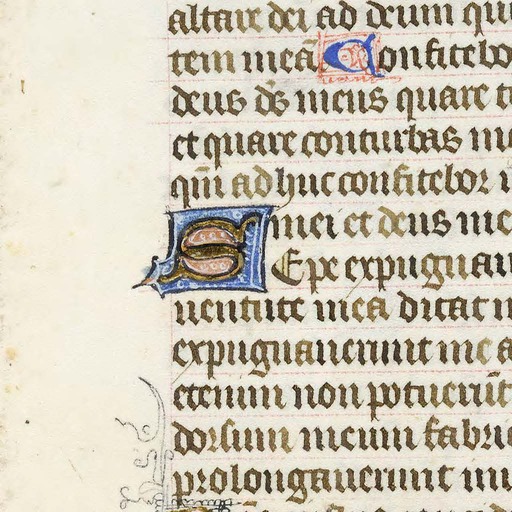 altare dei ad deum qui
tem meā Confitebo
deus ds meus quare t
et quare conturbas me
qm̄ adhuc confitebor i
mei et deus me
SEpe expugnau
uentute mea dicat n
expugnauerunt me a
etenim non potuerūt
dorsum meum fabric
prolongauerunt in